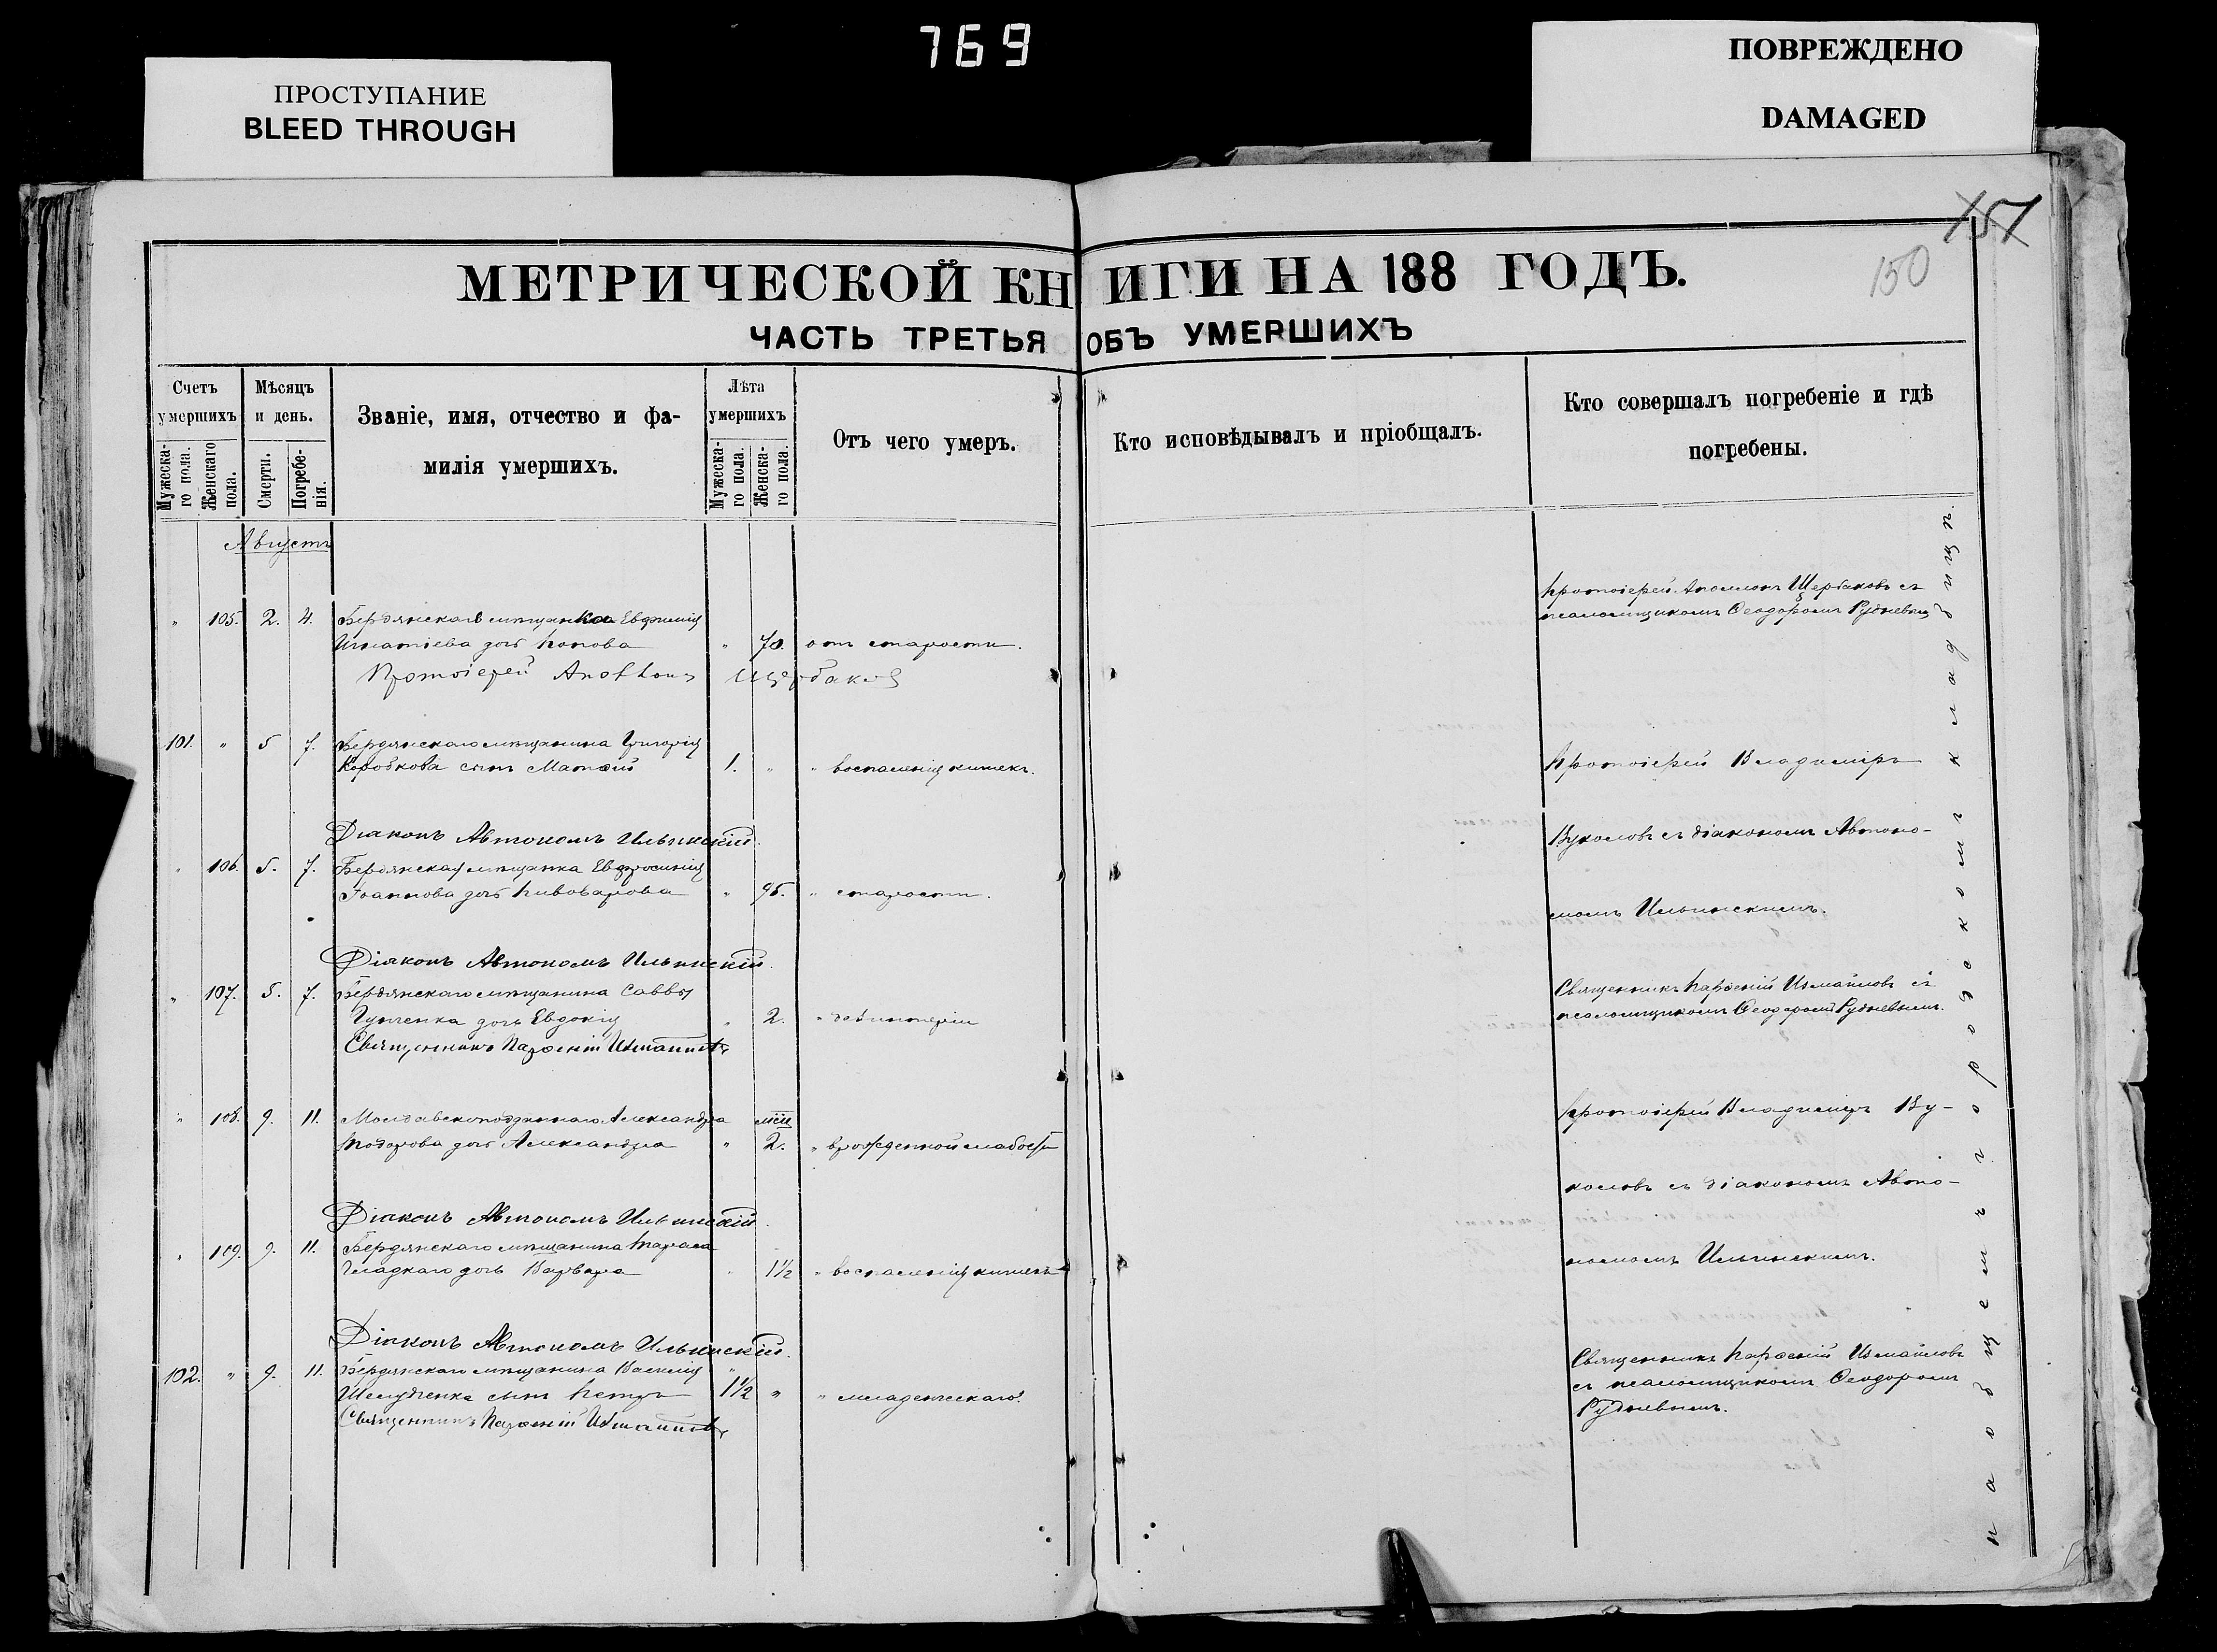 769
ПРОСТУПАНИЕ
BLEED THROUGH
ПОВРЕЖДЕНО
DAMAGED
151
150
МЕТРИЧЕСКОЙ КНИГИ НА 188 ГОДЪ.
ЧАСТЬ ТРЕТЬЯ ОБЪ УМЕРШИХЪ
Счетъ умершихъ
Мужеска-го пола.
Женскаго пола.
Мѣсяцъ и день.
Смерти.
Погребе-нія.
Званіе, имя, отчество и фа-
милія умершихъ.
Лѣта умершихъ
Мужеска-го пола.
Женска-го пола.
Отъ чего умеръ.
Кто исповѣдывалъ и пріобщалъ.
Кто совершалъ погребеніе и гдѣ
погребены.
Августъ
" 105. 2. 4. Бердянская мѣщанка Евфимія
Игнатіева дочь Попова " 70. отъ старости.
Протоіерей Аполлонъ Щербаковъ
Протоіерей Аполлонъ Щербаковъ съ
псаломщикомъ Ѳеодоромъ Рудневымъ
101. " 5 7. Бердянскаго мѣщанина Григорія
Коробкова сынъ Матѳей 1. " " воспаленія кишекъ.
Діаконъ Автономъ Ильинскій.
Протоіерей Владиміръ
" 106. 5. 7. Бердянская мѣщанка Евфросинія
Іоаннова дочь Пивоварова " 95. " старости.
Діаконъ Автономъ Ильинскій.
Вуколовъ съ діакономъ Автоно-
момъ Ильинскимъ.
" 107. 5. 7. Бердянскаго мѣщанина Саввы
дочь Евдокія " 2. " дезинтеріи
Священникъ Парѳеній Измаиловъ
Священникъ Парѳеній Измаиловъ съ
псаломщикомъ Ѳеодоромъ Рудневымъ.
" 108. 9. 11. Молдавскоподданнаго Александра
Тодорова дочь Александра " 2. " врожденной слабости
Діаконъ Автономъ Ильинскій.
Протоіерей Владиміръ Ву-
коловъ съ діакономъ Авто-
номомъ Ильинскимъ.
" 109. 9. 11. Бердянскаго мѣщанина Тараса
Гладкаго дочь Варвара " 1½ " воспаленія кишекъ
Діаконъ Автономъ Ильинскій.
102. " 9. 11. Бердянскаго мѣщанина Василія
сынъ Петръ 1½ " " младенческаго.
Священникъ Парѳеній Измаиловъ
Священникъ Парѳеній Измаиловъ
съ псаломщикомъ Ѳеодоромъ
Рудневымъ.
на общемъ городскомъ кладбищѣ.